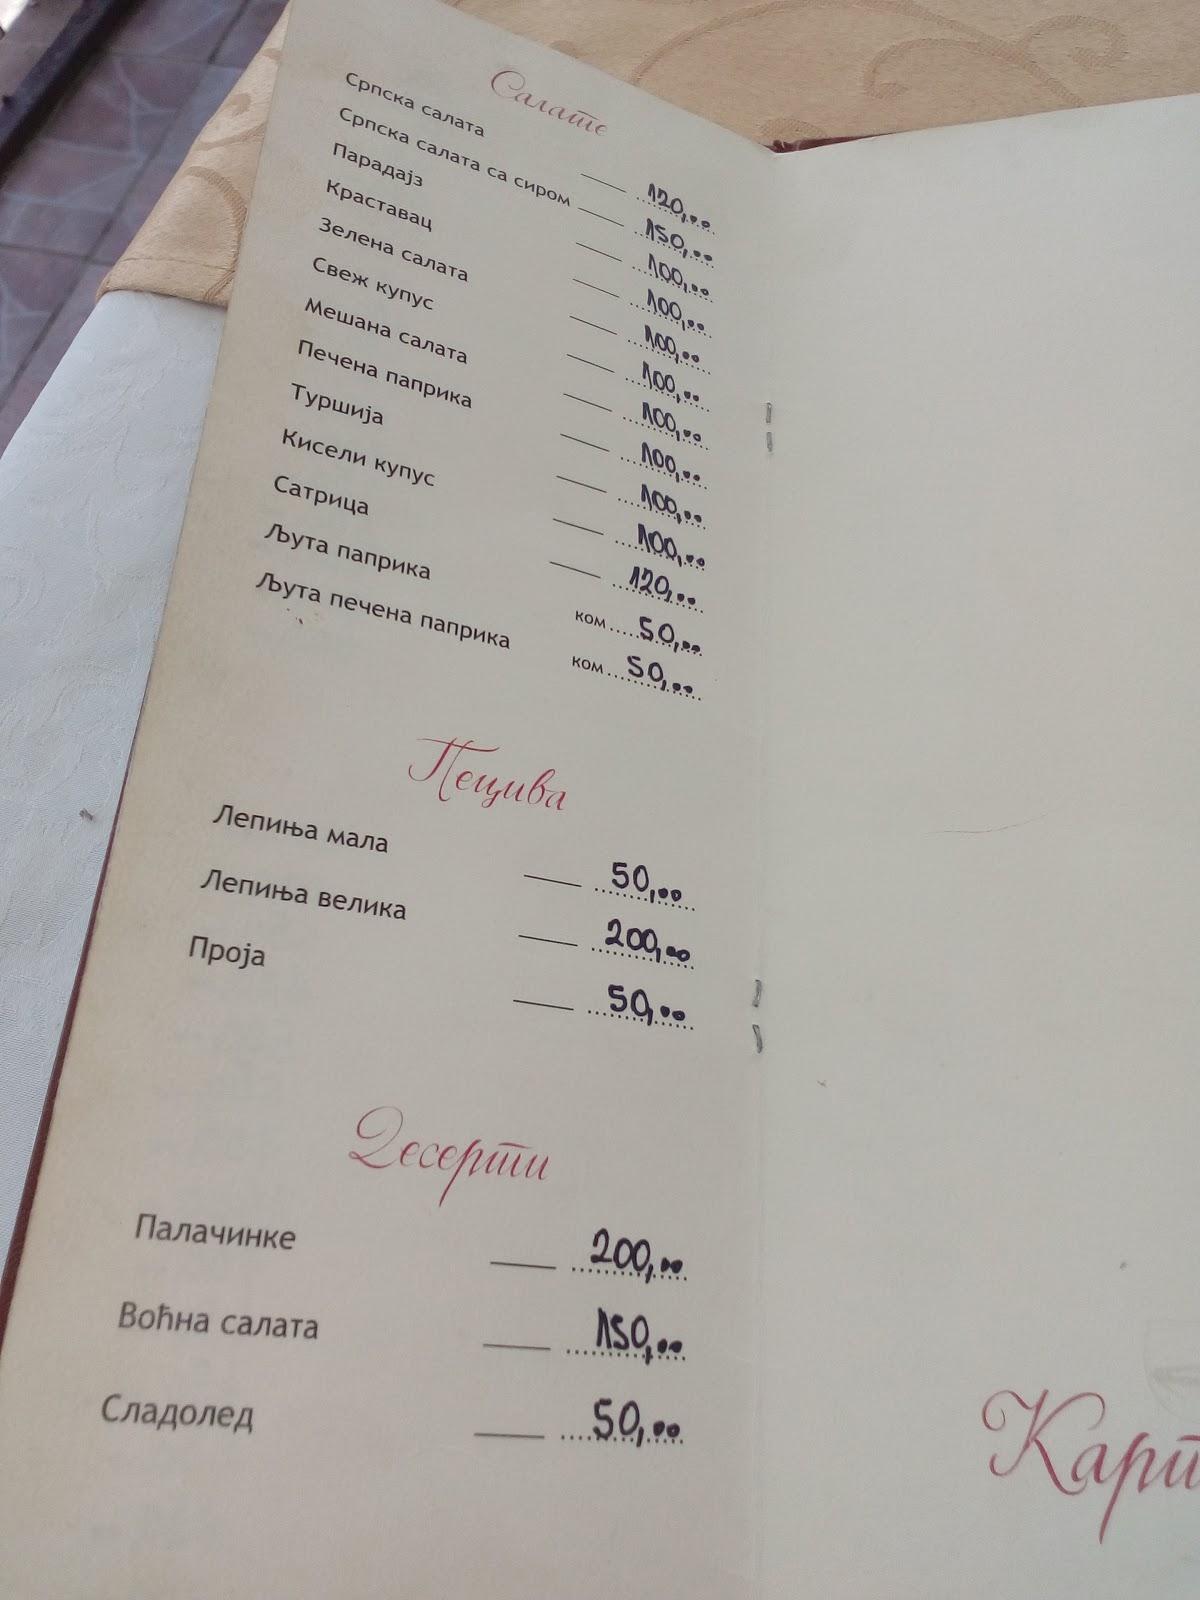 Салате
Српска салата 120,00
Српска салата са сиром 150,00
Парадајз 100,00
Краставац 100,00
Зелена салата 100,00
Свеж купус 100,00
Мешана салата 100,00
Печена паприка 100,00
Туршија 100,00
Кисели купус 100,00
Сатрица 120,00
Љута паприка ком 50,00
Љута печена паприка ком 50,00
Пецива
Лепиња мала 50,00
Лепиња велика 200,00
Проја 50,00
Десерти
Палачинке 200,00
Воћна салата 150,00
Сладолед 50,00